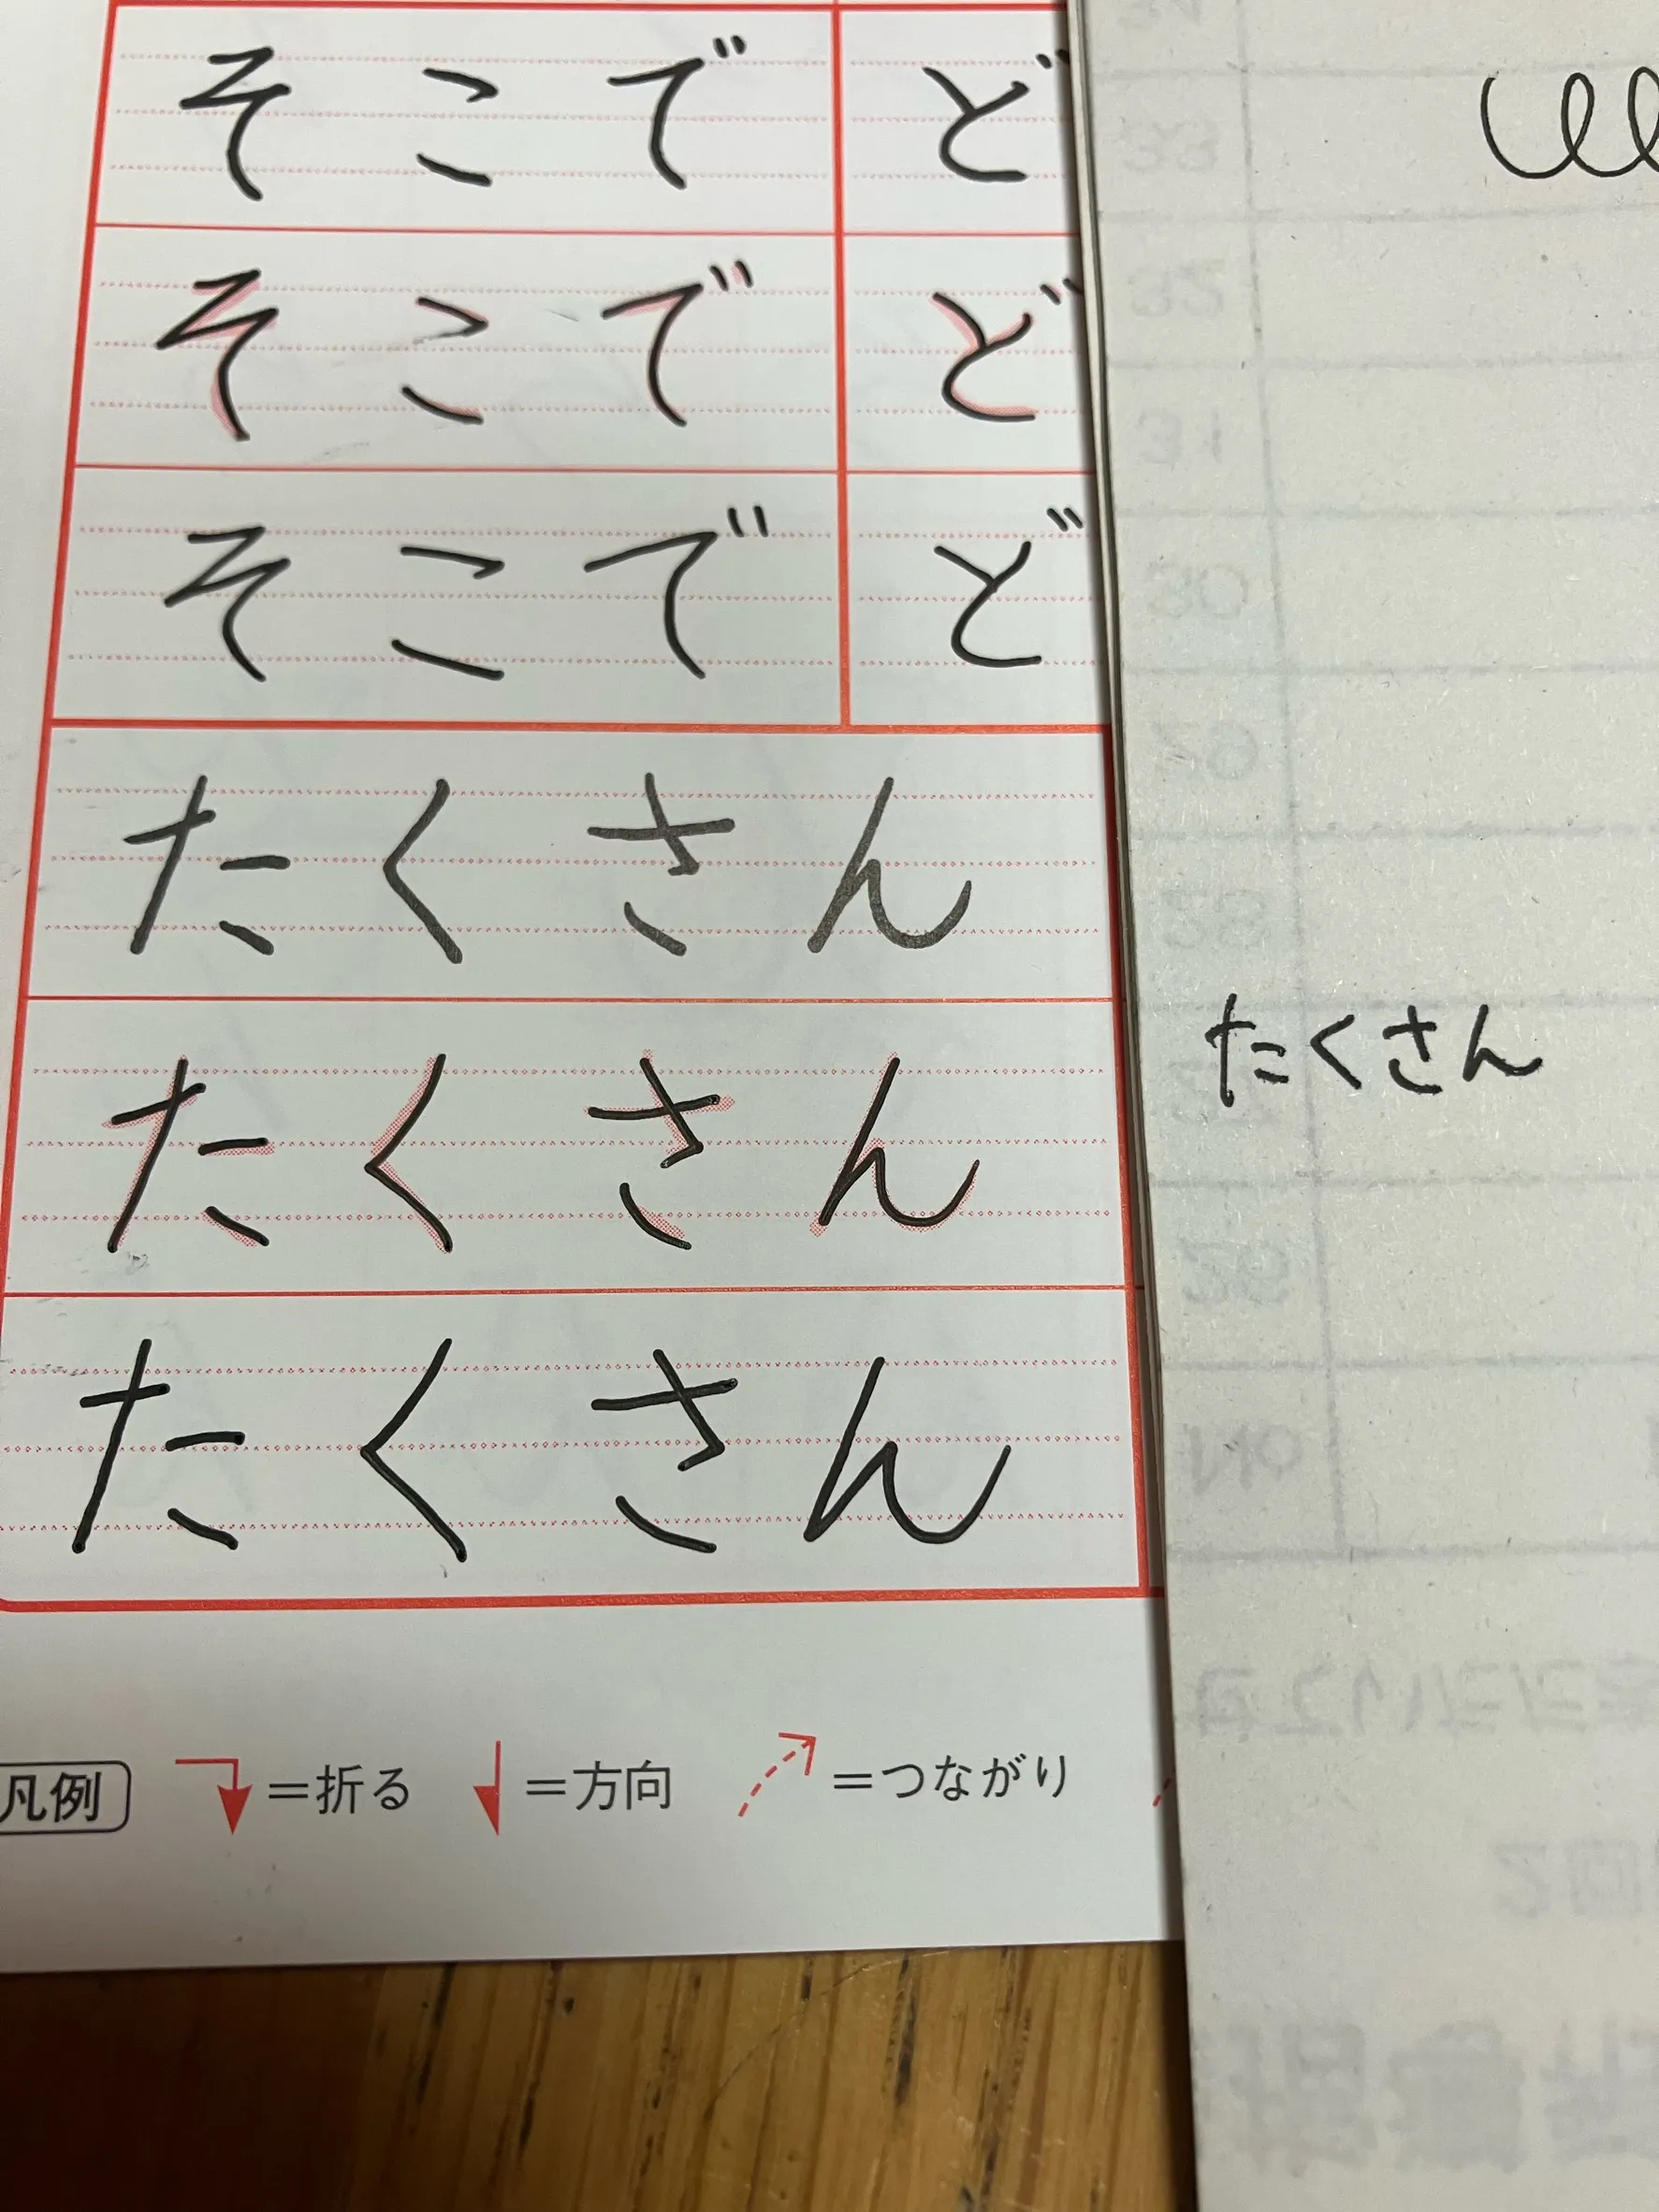 そこで ど
そこで ど
そこで ど
たくさん
たくさん
たくさん
凡例 =折る =方向 =つながり
たくさん